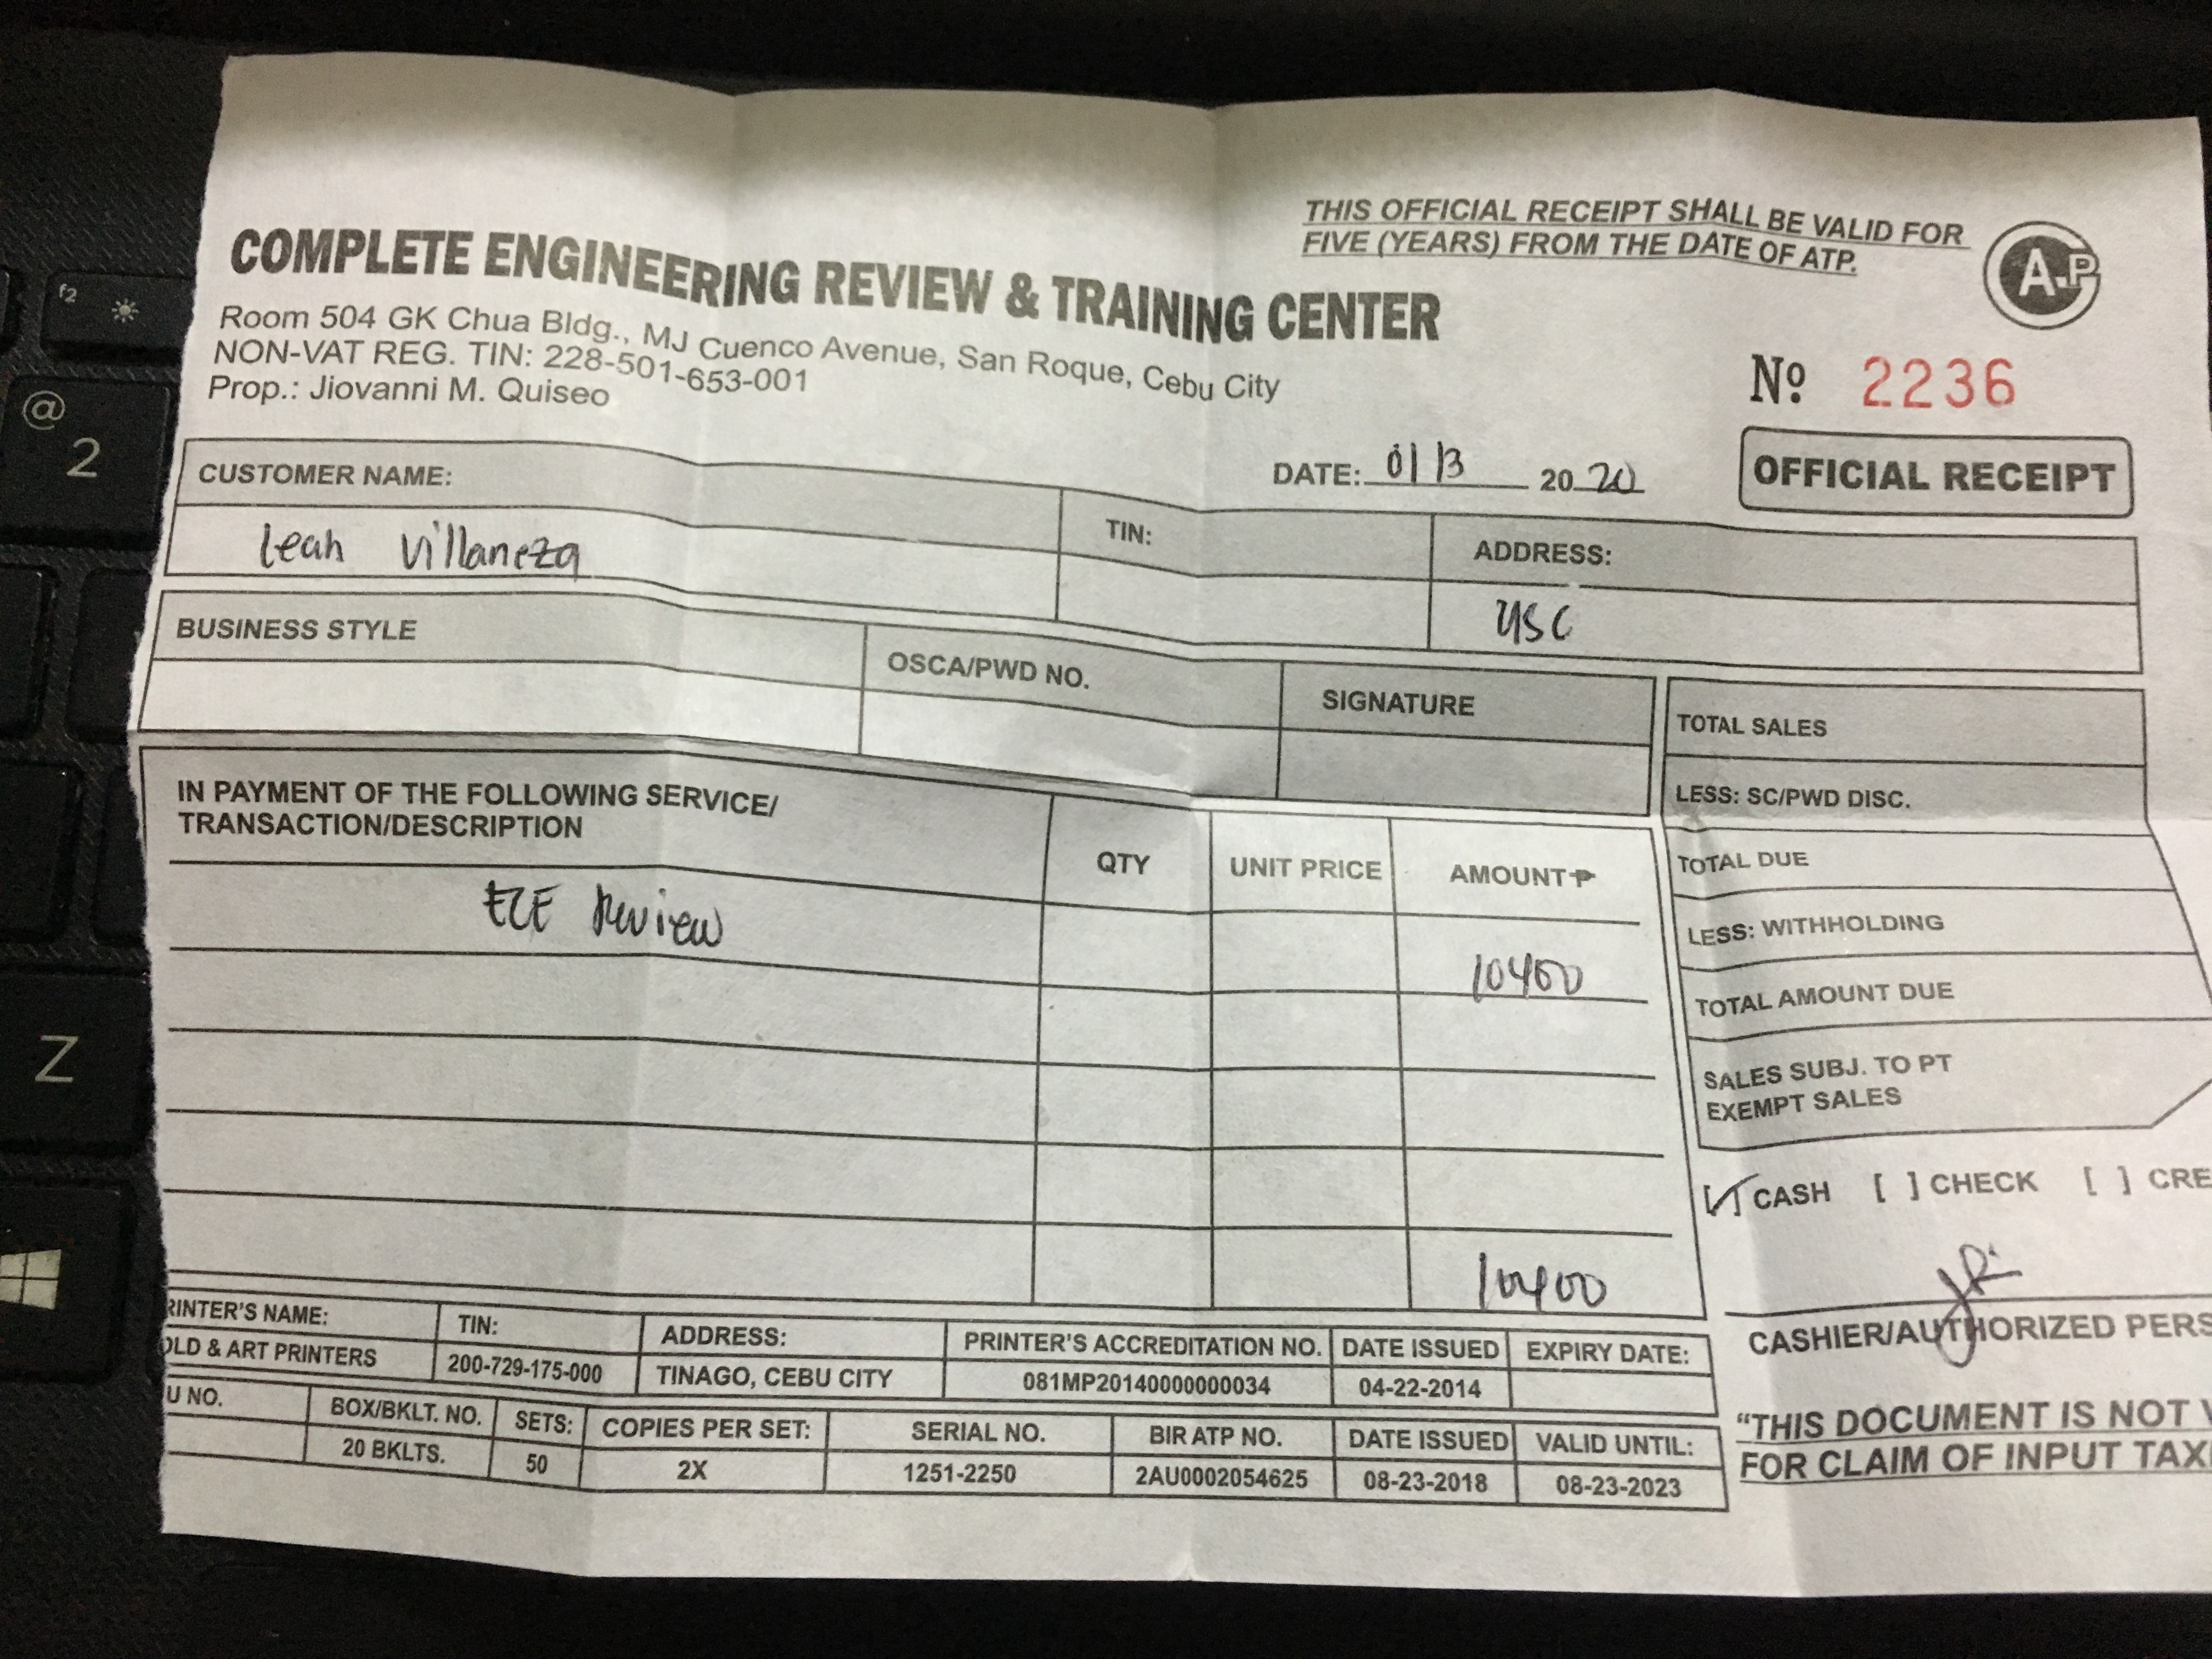 THIS OFFICIAL RECEIPT SHALL BE VALID FOR
FIVE (YEARS) FROM THE DATE OF ATP.
COMPLETE ENGINEERING REVIEW & TRAINING CENTER
Room 504 GK Chua Bldg., MJ Cuenco Avenue, San Roque, Cebu City
NON-VAT REG. TIN: 228-501-653-001
Prop.: Jiovanni M. Quiseo
AP
Nº 2236
DATE: 01 13 20 20
OFFICIAL RECEIPT
CUSTOMER NAME: TIN: ADDRESS:
Leah USC
BUSINESS STYLE OSCA/PWD NO. SIGNATURE
TOTAL SALES
LESS: SC/PWD DISC.
IN PAYMENT OF THE FOLLOWING SERVICE/
TRANSACTION/DESCRIPTION QTY UNIT PRICE AMOUNT-₱
TOTAL DUE
Review
LESS: WITHHOLDING
10400
TOTAL AMOUNT DUE
SALES SUBJ. TO PT
EXEMPT SALES
10400
[✓] CASH [ ] CHECK [ ] CRE
CASHIER/AUTHORIZED PERS
RINTER'S NAME: TIN: ADDRESS: PRINTER'S ACCREDITATION NO. DATE ISSUED EXPIRY DATE:
OLD & ART PRINTERS 200-729-175-000 TINAGO, CEBU CITY 081MP20140000000034 04-22-2014
U NO. BOX/BKLT. NO. SETS: COPIES PER SET: SERIAL NO. BIR ATP NO. DATE ISSUED VALID UNTIL:
20 BKLTS. 50 2X 1251-2250 2AU0002054625 08-23-2018 08-23-2023
"THIS DOCUMENT IS NOT V
FOR CLAIM OF INPUT TAX
@
2
f2
Z